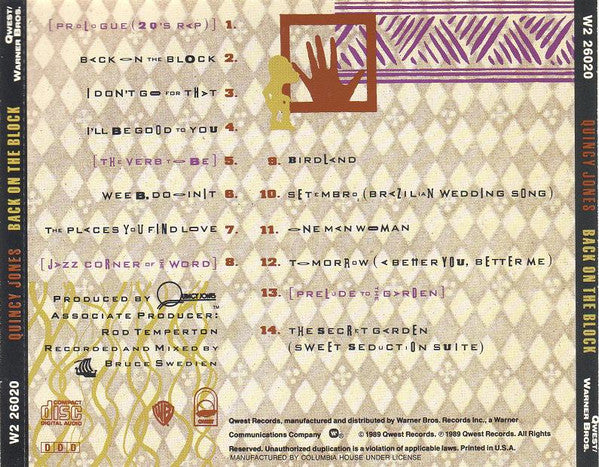 QWEST/
WARNER BROS.
W2 26020
QUINCY JONES BACK ON THE BLOCK
[PROLOGUE (2Q'S RAP)] 1.
BACK ON THE BLOCK 2.
I DON'T GO FOR THAT 3.
I'LL BE GOOD TO YOU 4.
[THE VERB TO BE] 5.
WEE B. DOOINIT 6.
THE PLACES YOU FIND LOVE 7.
[JAZZ CORNER OF THE WORD] 8.
9. BIRDLAND
10. SETEMBRO (BRAZILIAN WEDDING SONG)
11. ONE MAN WOMAN
12. TOMORROW (A BETTER YOU, BETTER ME)
13. [PRELUDE TO THE GARDEN]
14. THE SECRET GARDEN
(SWEET SEDUCTION SUITE)
PRODUCED BY QUINCY JONES
ASSOCIATE PRODUCER: ™
ROD TEMPERTON
RECORDED AND MIXED BY
BRUCE SWEDIEN
COMPACT
disc
DIGITAL AUDIO
DDD
WB
Qwest Records, manufactured and distributed by Warner Bros. Records Inc., a Warner
Communications Company ℗ 1989 Qwest Records. © 1989 Qwest Records. All Rights
Reserved. Unauthorized duplication is a violation of applicable laws. Printed in U.S.A.
MANUFACTURED BY COLUMBIA HOUSE UNDER LICENSE
W2 26020
QUINCY JONES BACK ON THE BLOCK
QWEST/
WARNER BROS.